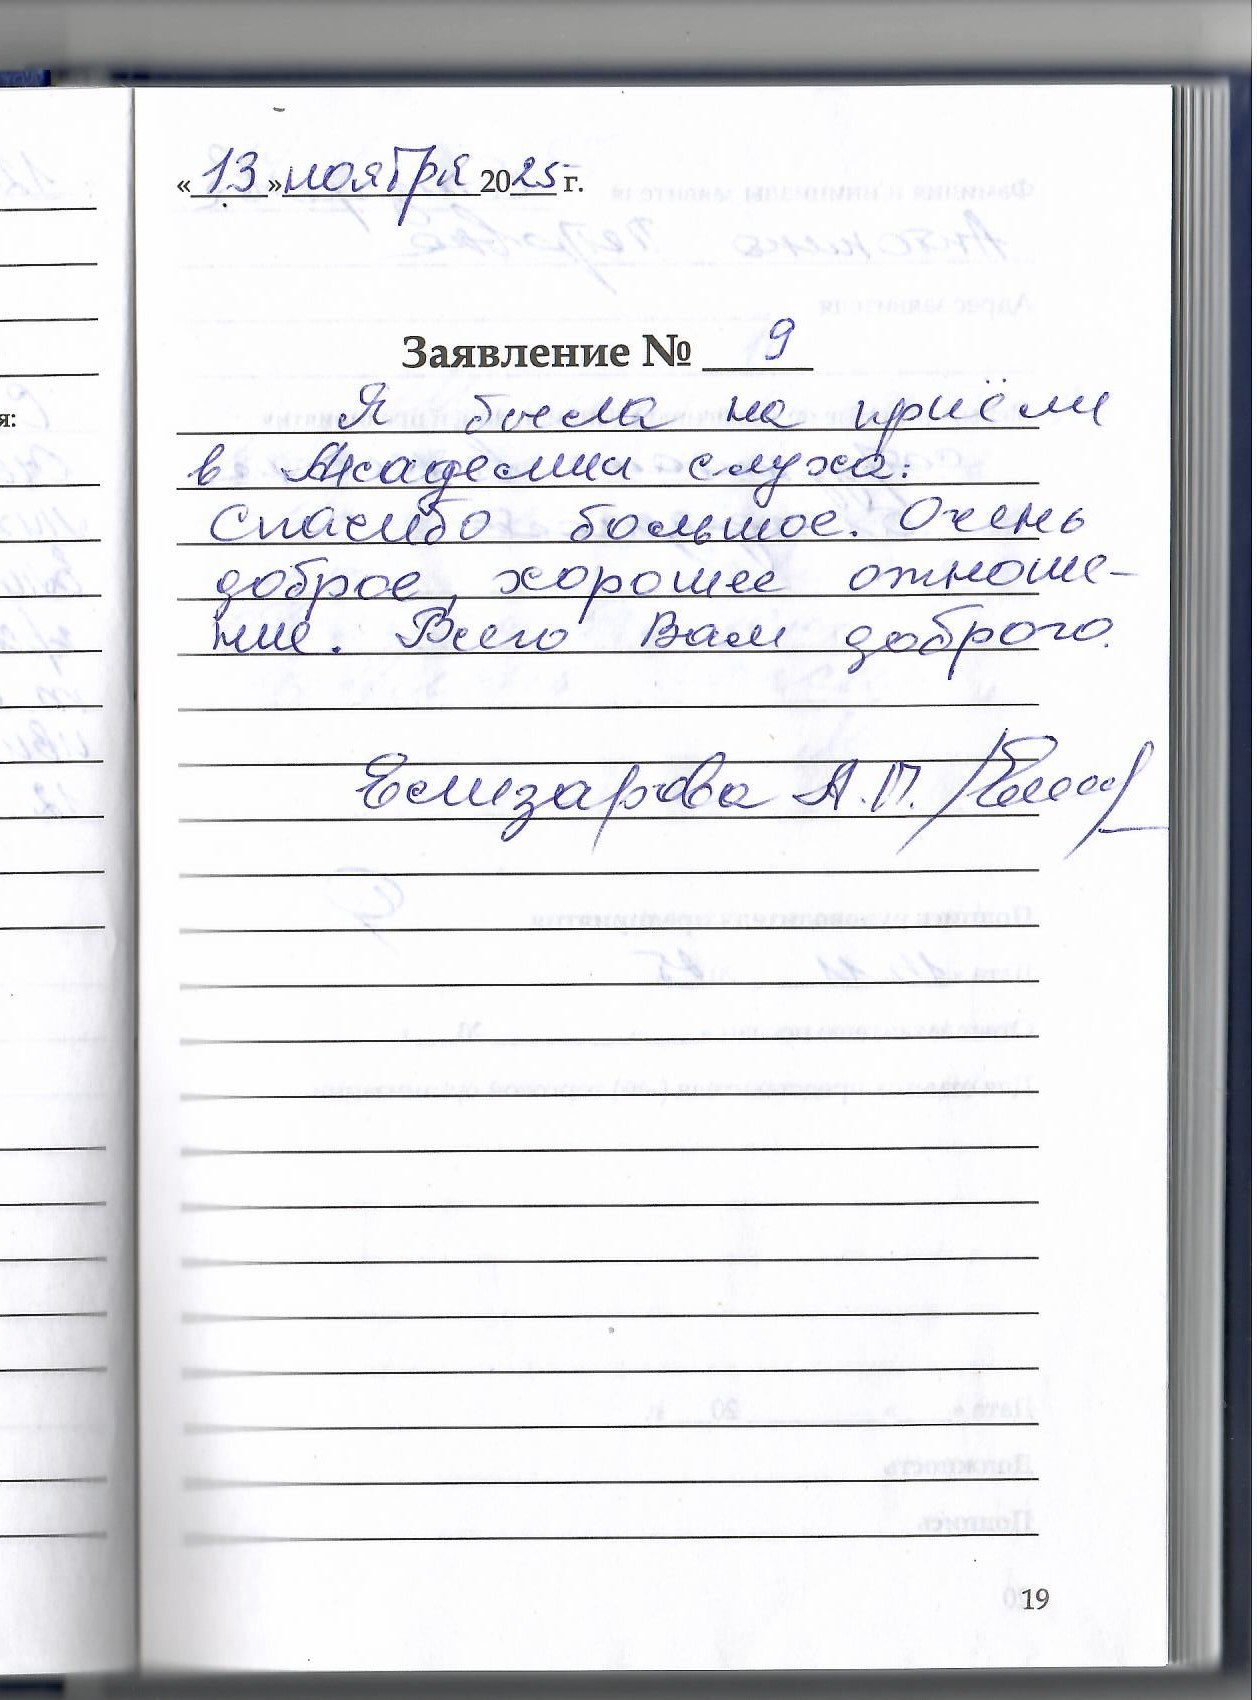 «13» ноября 2025 г.
Заявление № 9
Я была на приёми
в Академии слуха.
Спасибо большое. Очень
доброе, хорошее отноше-
ние. Всего Вам доброго.
Елизарова А.П.
я:
19